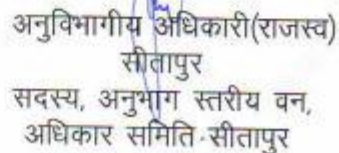 अनुविभागीय अधिकारी(राजस्व)
सीतापुर
सदस्य, अनुभाग स्तरीय वन,
अधिकार समिति-सीतापुर